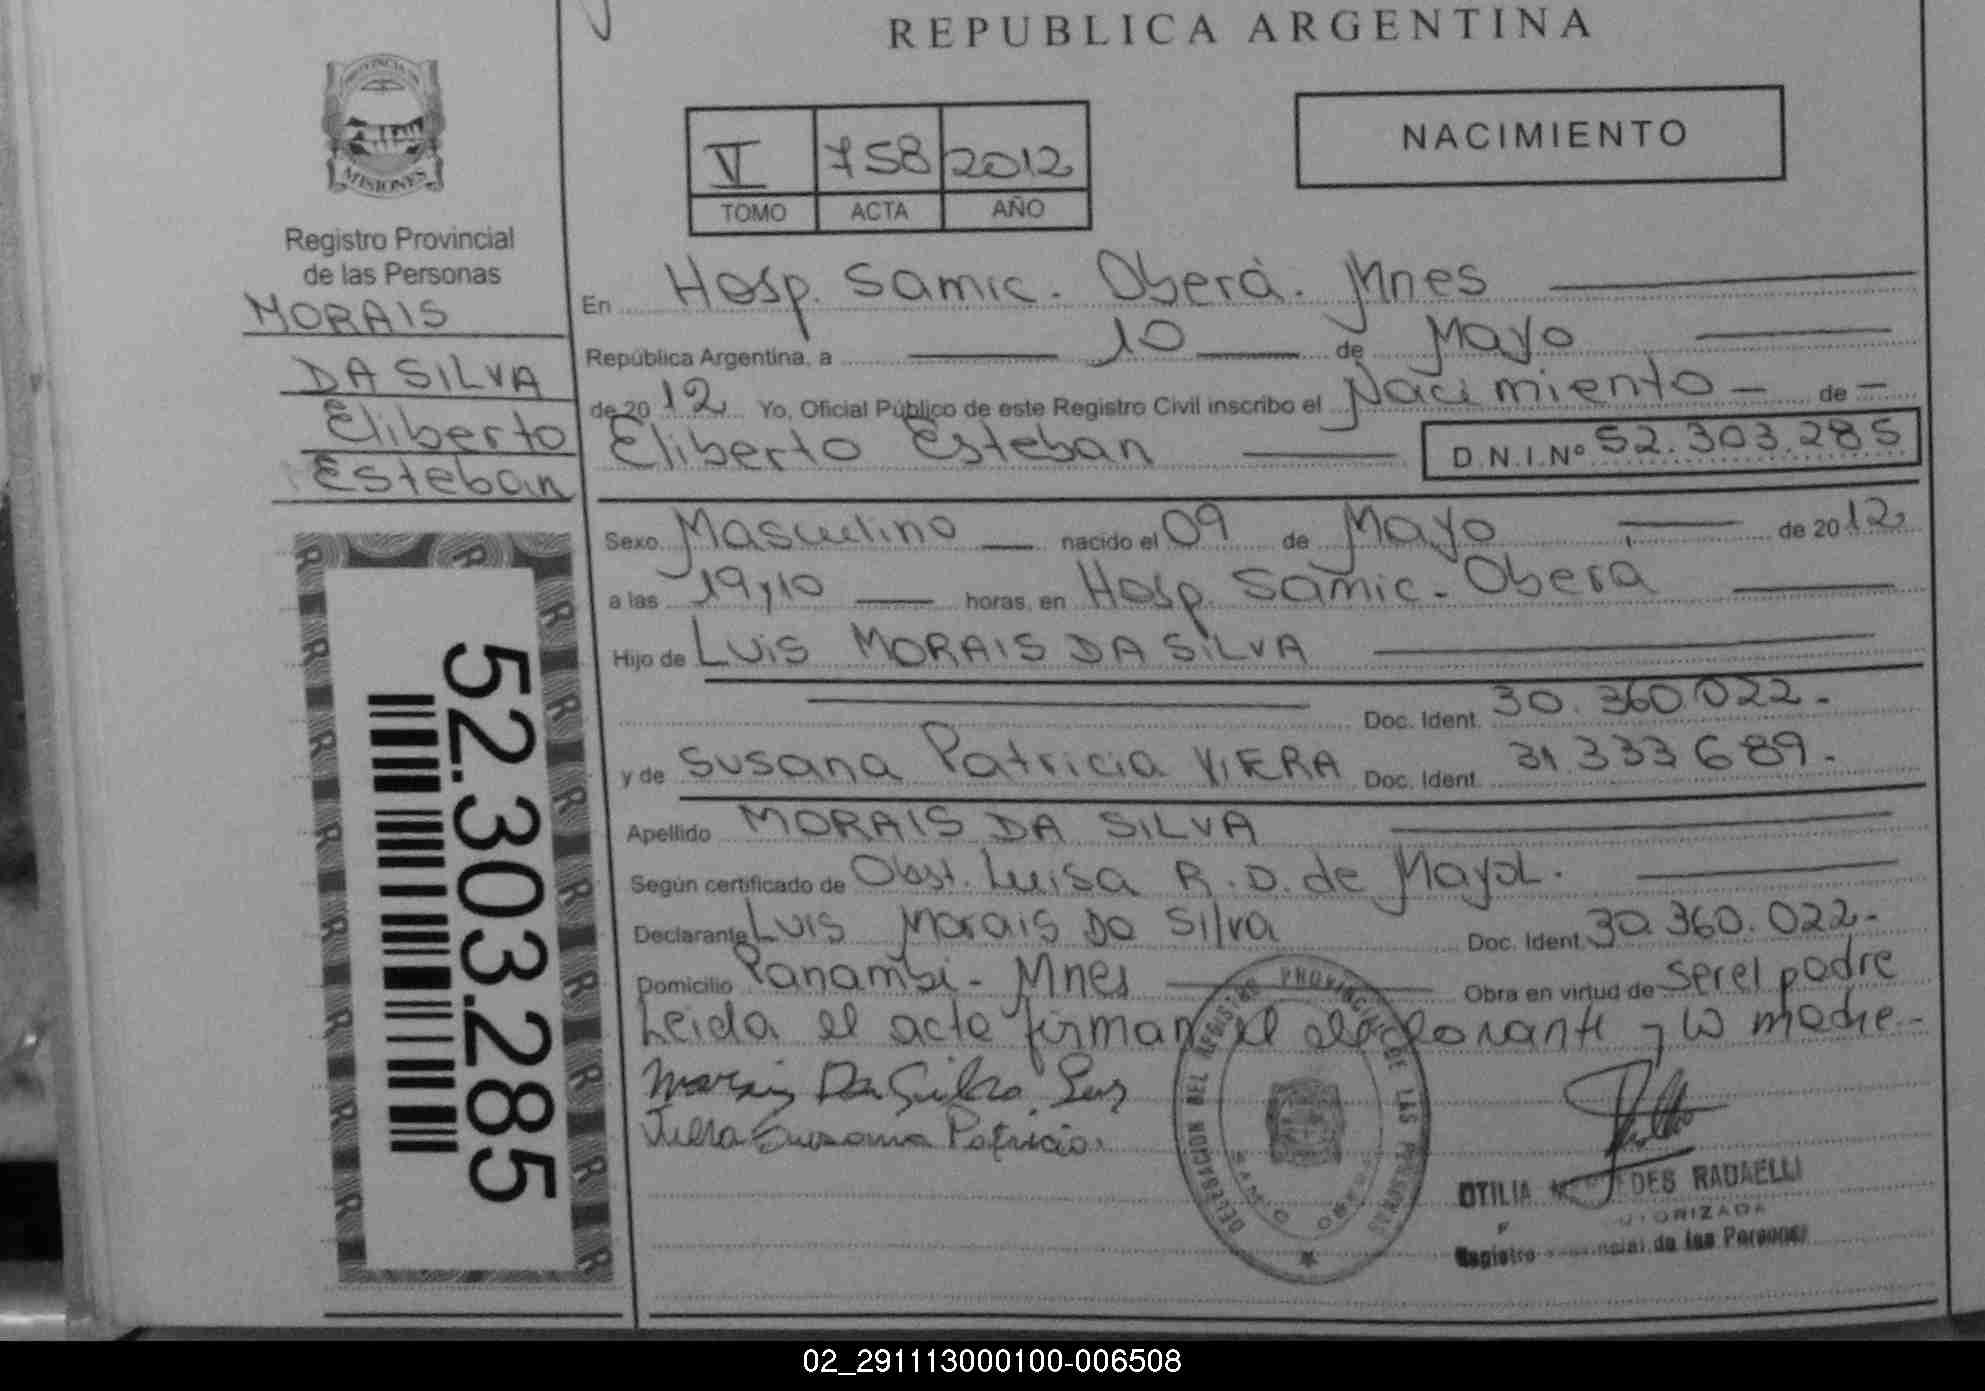 REPUBLICA ARGENTINA
PROVINCIA DE
MISIONES
Registro Provincial
de las Personas
MORAIS
DA SILVA
Eliberto
Esteban
52.303.285
V 758 2012
TOMO ACTA AÑO
NACIMIENTO
En Hosp. Samic. Oberá. Mnes
República Argentina, a 10 de Mayo
de 2012 Yo, Oficial Público de este Registro Civil inscribo el Nacimiento de
Eliberto Esteban D.N.I.Nº 52.303.285
Sexo Masculino nacido el 09 de Mayo de 2012
a las 19,10 horas, en Hosp. Samic. Obera
Hijo de LUIS MORAIS DA SILVA
Doc. Ident. 30.360.022.
y de Susana Patricia VIERA Doc. Ident. 31.333.689.
Apellido MORAIS DA SILVA
Según certificado de Obst. Luisa R.D. de Mayol.
Declarante Luis Morais Da Silva Doc. Ident. 30.360.022.
Domicilio Panambi - Mnes Obra en virtud de ser el padre
Leida el acta firman el declarante y la madre.
Morais Da Silva Luis
Viera Susana Patricia
DELEGACION DEL REGISTRO PROVINCIAL DE LAS PERSONAS
OTILIA RADAELLI
Registro de las Personas
02_291113000100-006508